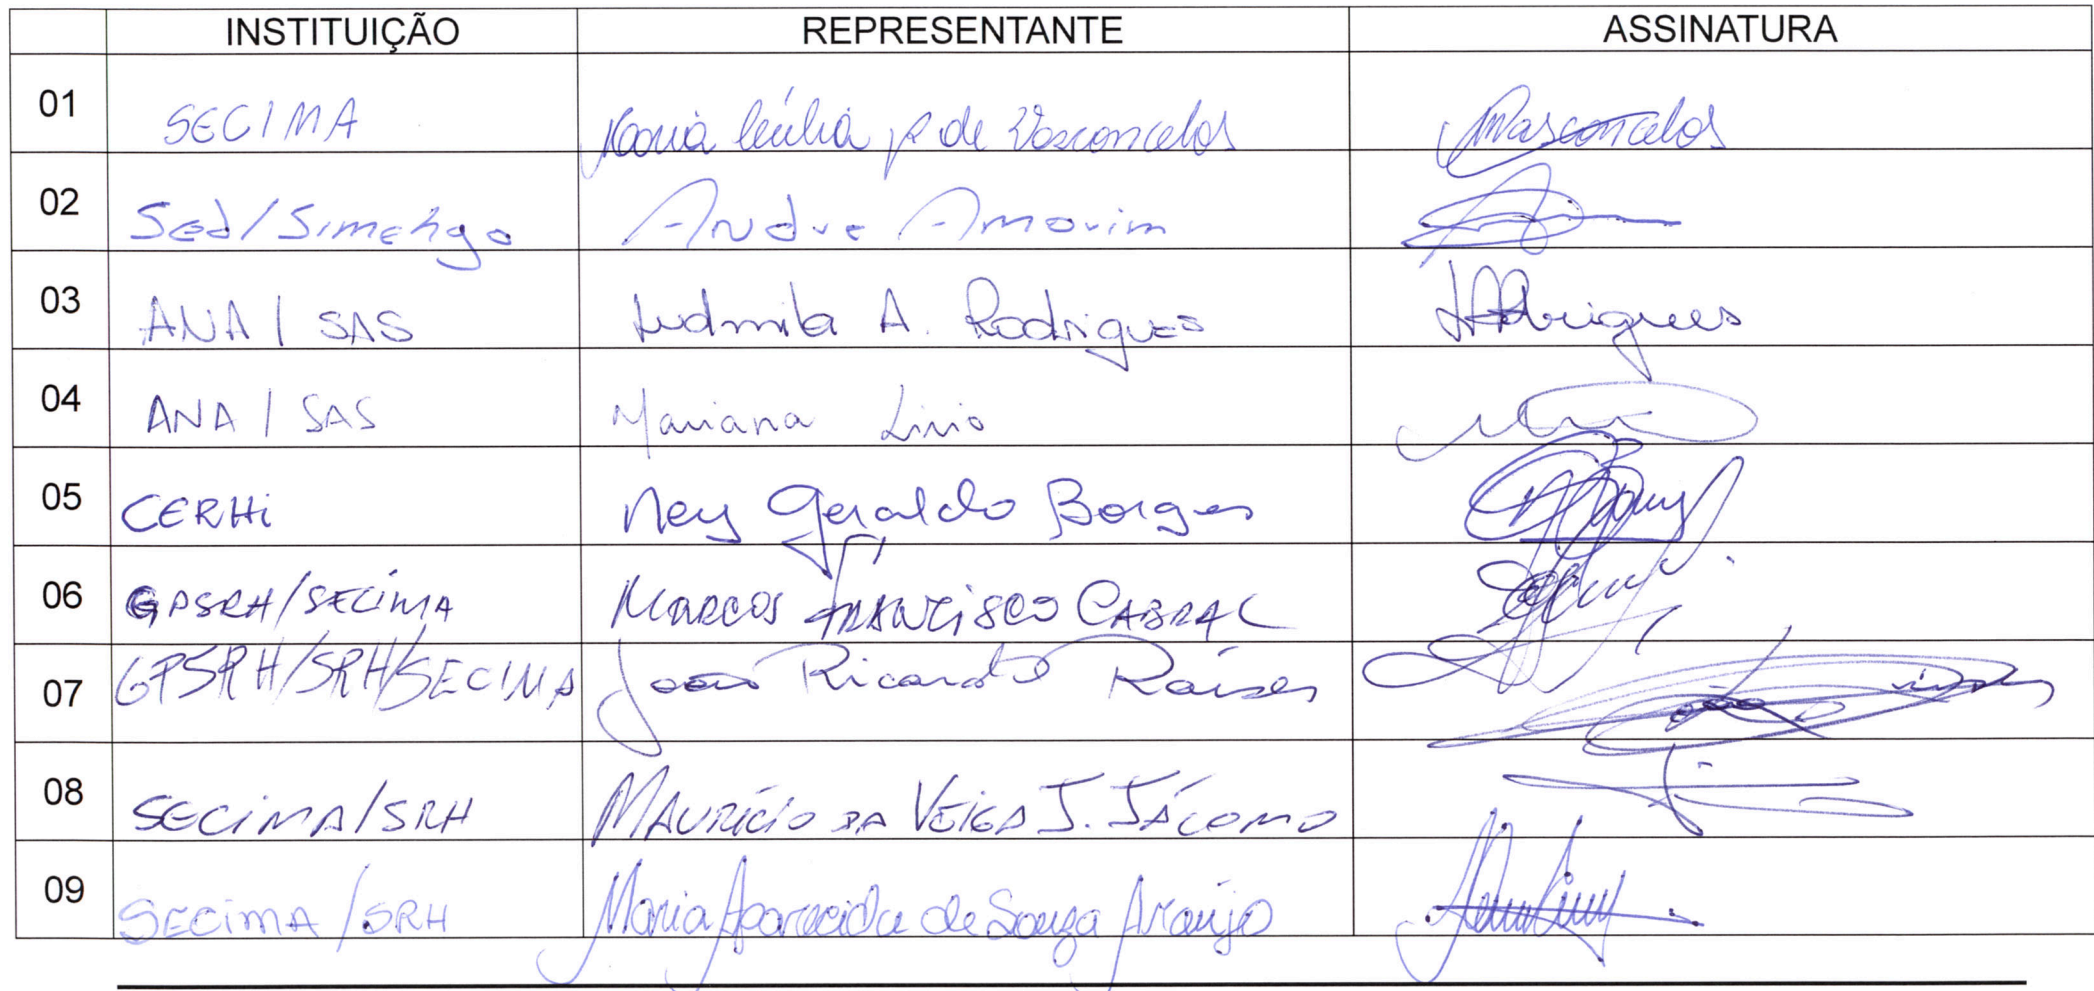 INSTITUIÇÃO REPRESENTANTE ASSINATURA
01 SECIMA Maria de Vasconcelos Vasconcelos
02 Sed/Simehgo Andre Amorim
03 ANA / SAS Ludmila A. Rodrigues LARodrigues
04 ANA / SAS Mariana Lirio
05 CERHi Ney Geraldo Borges
06 GPSRH/SECIMA MARCOS FRANCISCO CABRAL
07 GPSRH/SRH/SECIMA João Ricardo Raiser
08 SECIMA/SRH MAURÍCIO DA VEIGA J. JÁCOMO
09 SECIMA/SRH Maria Aparecida de Souza Araújo